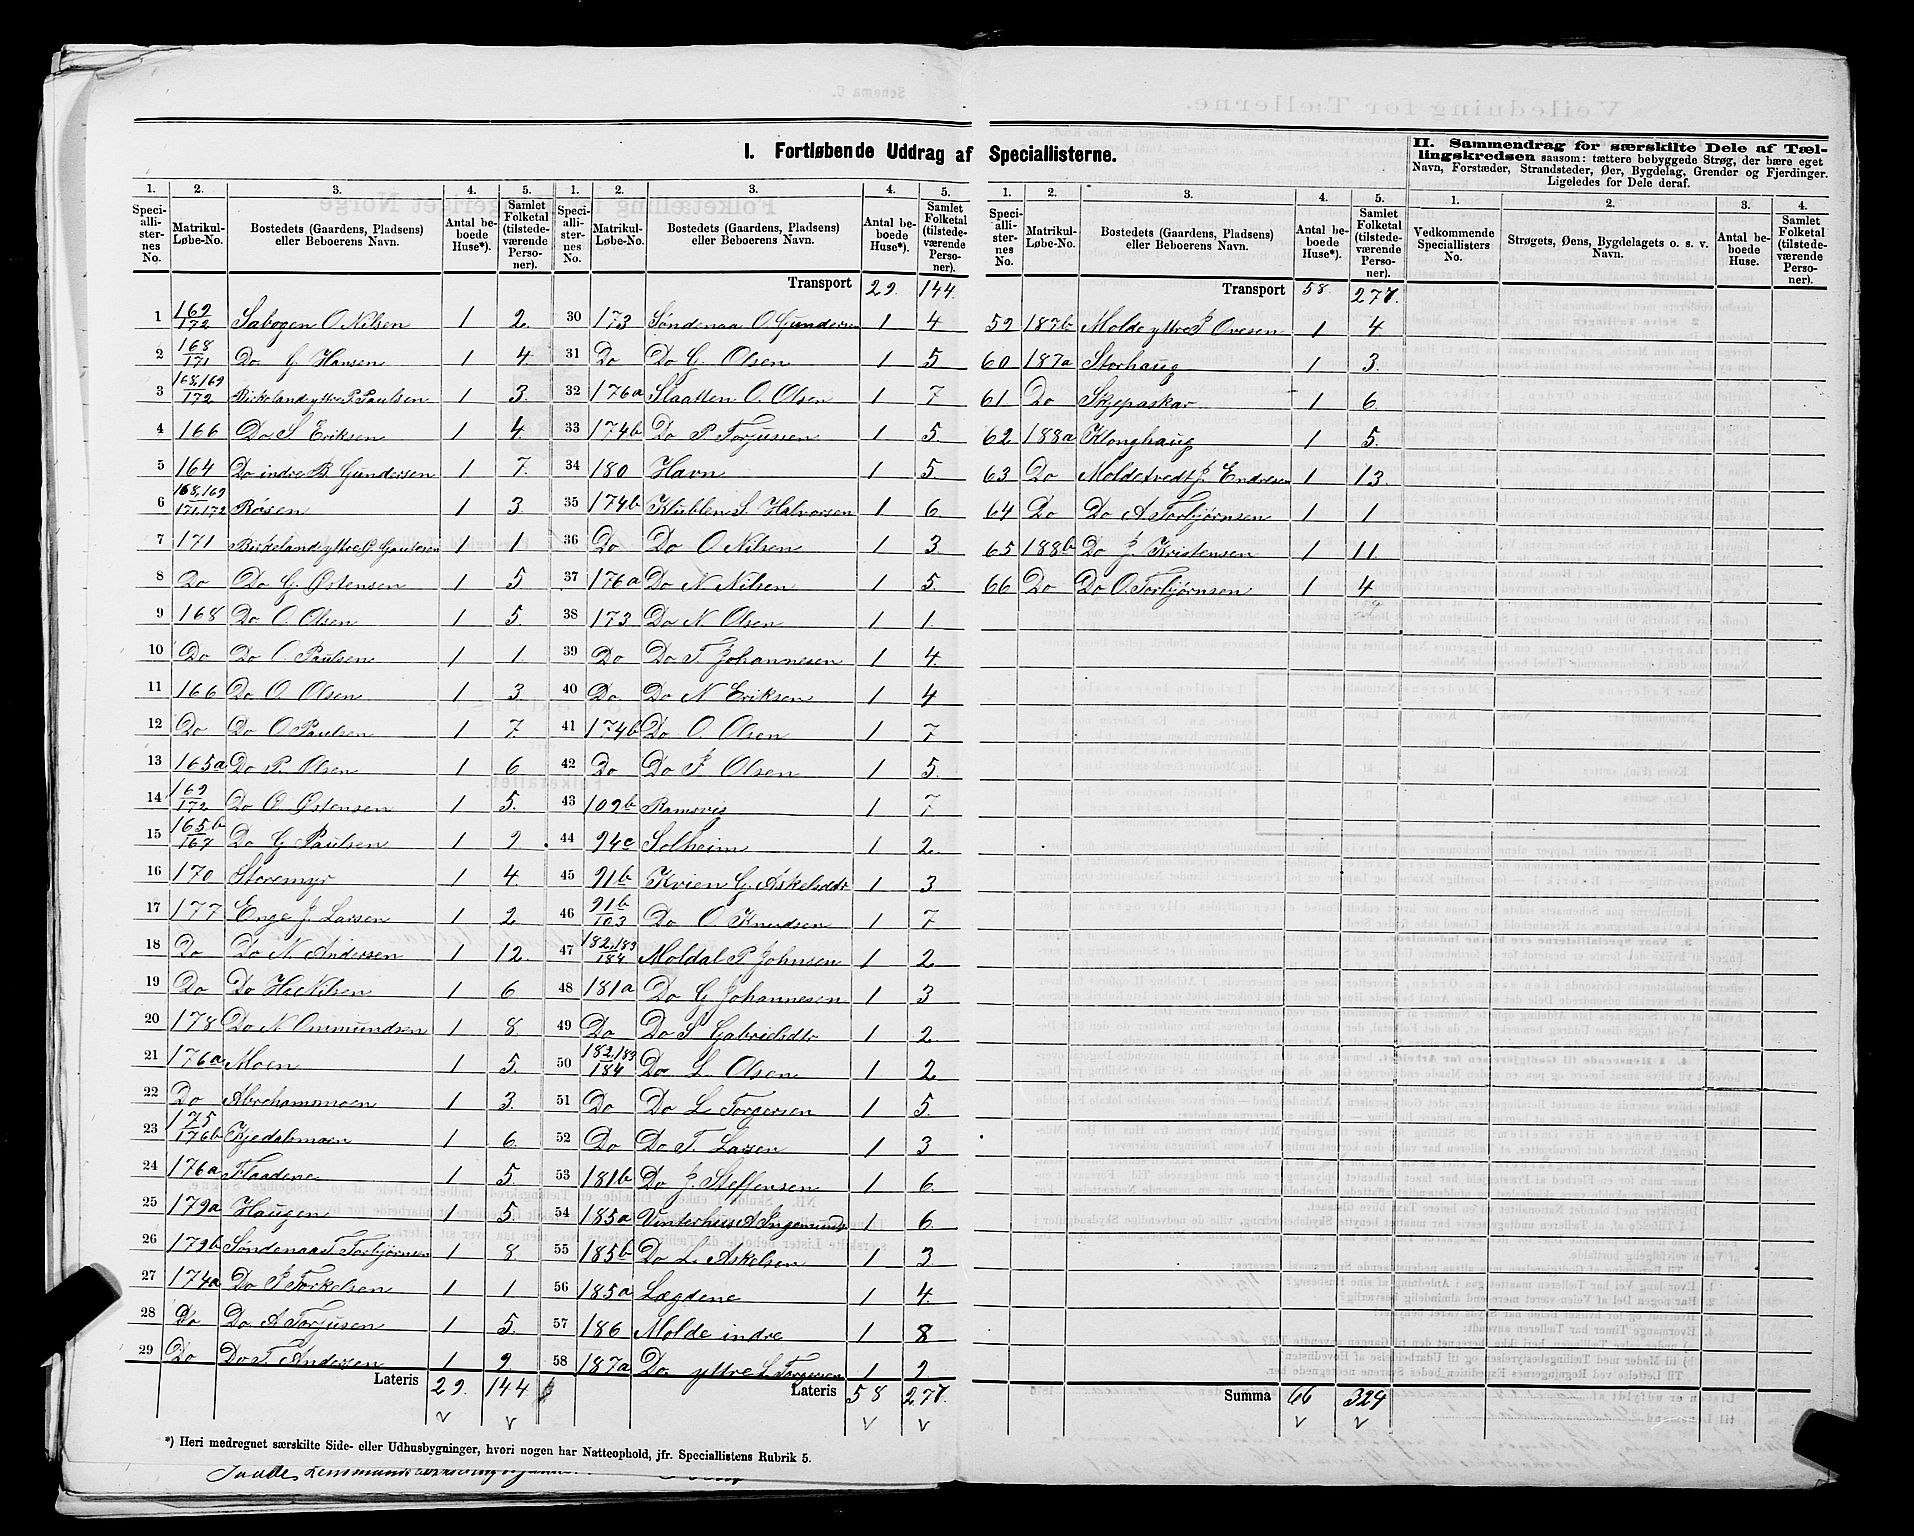 I. Fortløbende Uddrag af Speciallisterne.
1. 2. 3. 4. 5.
Speciallisternes No. Matrikul-Løbe-No. Bostedets (Gaardens, Pladsens) eller Beboerens Navn. Antal beboede Huse*). Samlet Folketal (tilstedeværende Personer).
1 169/172 Sabogen O. Nilsen 1 2.
2 168/171 Do G Hansen 1 4.
3 168,169/172 Birkeland ytre P. Paulsen 1 3.
4 166 Do S Eriksen 1 4.
5 164 Do indre B. Gundersen 1 7.
6 168,169/171,172 Røsen 1 3.
7 171 Birkeland ytre G. Gaulsen 1 1
8 Do Do G. Østensen 1 5
9 168 Do O. Olsen 1 5.
10 Do Do O. Paulsen 1 1.
11 166 Do O. Olsen 1 3.
12 Do Do O Paulsen 1 7.
13 165a Do P. Olsen 1 6
14 169/172 Do O. Østensen 1 5.
15 165b/167 Do G Paulsen 1 9
16 170 Storemyr 1 4.
17 177 Enge J. Larsen 1 2
18 Do Do N. Andersen 1 12.
19 Do Do H. Nilsen 1 6
20 178 Do N. Ommundsen 1 8.
21 176a Moen 1 5.
22 Do Abrahamsmoen 1 3.
23 175/176b Kjedalsmoen 1 6.
24 176a Flaadene 1 5.
25 179a Haugen 1 5
26 179b Søndenaa T Torbjørnsen 1 8
27 174a Do P Torkelsen 1 1
28 Do Do A Torjusen 1 5.
29 Do Do T. Andersen 1 9.
Lateris 29. 144
1. 2. 3. 4. 5.
Speciallisternes No. Matrikul-Løbe-No. Bostedets (Gaardens, Pladsens) eller Beboerens Navn. Antal beboede Huse*). Samlet Folketal (tilstedeværende Personer).
Transport 29. 144.
30 173 Søndenaa O. Gundersen 1 4
31 Do Do G. Olsen 1 5
32 176a Slaatten O. Olsen 1 7
33 174b Do P Torjussen 1 5.
34 180 Havn 1 5
35 174b Klublen S. Halvorsen 1 6
36 Do Do O Nilsen 1 3.
37 176a Do N Nilsen 1 5.
38 173 Do N. Olsen 1 1.
39 Do Do T. Johannesen 1 4.
40 Do Do N Eriksen 1 4
41 174b Do O. Olsen 1 7
42 Do Do P Olsen 1 5.
43 109b Ramsvig 1 7
44 94c Solheim 1 2.
45 91b Kvien G. Askelsdtr 1 3
46 91b/103 Do O Knudsen 1 7
47 182,183/184 Moldal P Johnsen 1 2
48 181a Do G Johannesen 1 3
49 Do Do S Gabrielsdtr 1 2
50 182,183/184 Do L. Olsen 1 2
51 Do Do L Torgersen 1 5.
52 Do Do T. Larsen 1 3
53 181b Do J Steffensen 1 6.
54 185a Vinterhus A Ingemunds 1 6.
55 185b Do L. Askelsen 1 3
56 185a Lægdene 1 4.
57 186 Molde indre 1 8
58 187a Do ytre L. Torgersen 1 9
Lateris 58 277.
1. 2. 3. 4. 5.
Speciallisternes No. Matrikul-Løbe-No. Bostedets (Gaardens, Pladsens) eller Beboerens Navn. Antal beboede Huse*). Samlet Folketal (tilstedeværende Personer).
Transport 58. 277.
59 187b Molde ytre P Ovesen 1 4
60 187a Storhaug 1 3.
61 Do Skjepaskar 1 6.
62 188a Klonghaug 1 5.
63 Do Moldetvedt J. Endresen 1 13.
64 Do Do A Torbjørnsen 1 1
65 188b Do J. Kristensen 1 11.
66 Do Do O. Torbjørnsen 1 4
Summa 66 324
II. Sammendrag for særskilte Dele af Tællingskredsen saasom: tættere bebyggede Strøg, der bære eget Navn, Forstæder, Strandsteder, Øer, Bygdelag, Grender og Fjerdinger. Ligeledes for Dele deraf.
1. 2. 3. 4.
Vedkommende Speciallisters No. Strøgets, Øens, Bygdelagets o. s. v. Navn. Antal beboede Huse. Samlet Folketal (tilstedeværende Personer).
*) Heri medregnet særskilte Side- eller Udhusbygninger, hvori nogen har Natteophold, jfr. Speciallistens Rubrik 5.